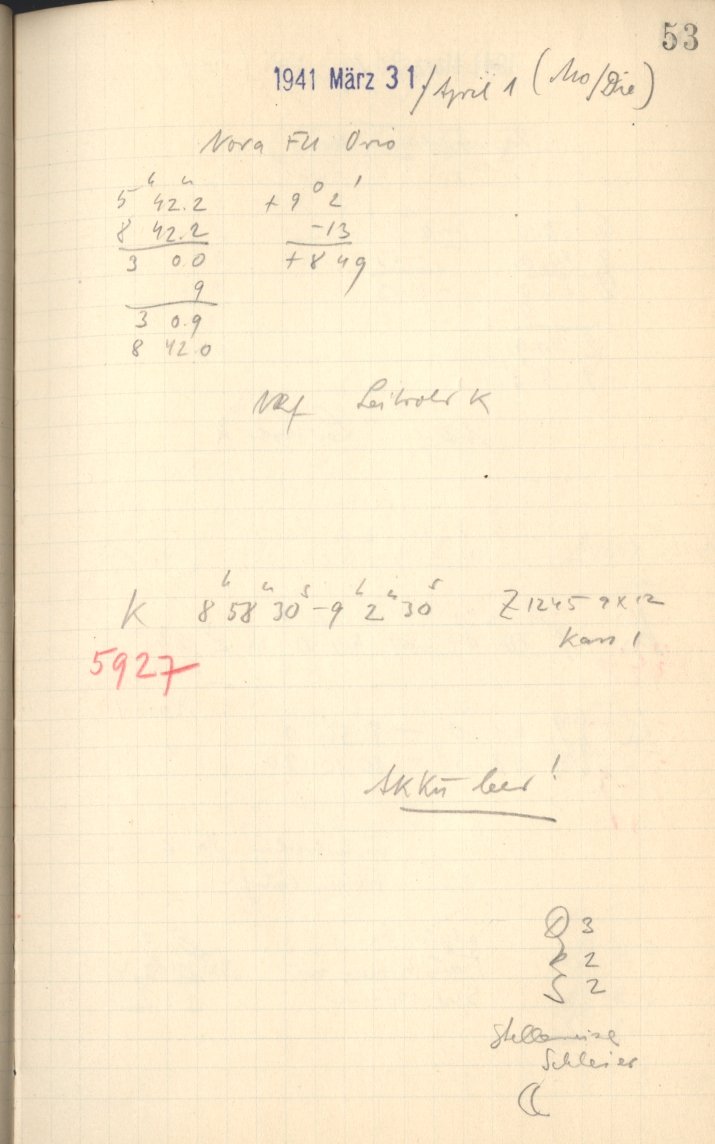 53
1941 März 31. / April 1 (Mo/Die)
Nova FU Orio
5ʰ 42.2ᵐ + 9° 2'
8 42.2 -13
3 0.0 + 8 49
9
3 0.9
8 42.0
K
K 8ʰ 58ᵐ 30ˢ - 9ʰ 2ᵐ 30ˢ Z 1245 9x12
Kass 1
5927
Akku leer!
3
2
S 2
Stellenweise
Schleier
☾